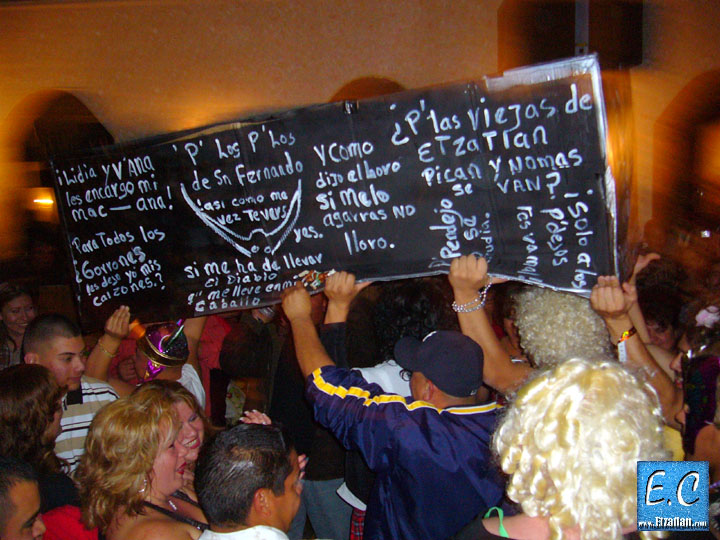 ¡Lidia y V'Ana
les encargo mi
mac — ana!
Para Todos los
¿Gorrones
les dejo mis
calzones.?
'P' Los P'Los
de Sn Fernando
'así como me
vez Te verás
si me ha de llevar
el Diablo
que me lleve en mi
caballo
y como
dijo el loro
si melo
agarras no
lloro.
¿P'las viejas de
ETZATLAN
Pican y nomas
se VAN?
¡Pendejo
se
¡Solo a
Pdejos
los vamos
E.C
www.Etzatlan.com